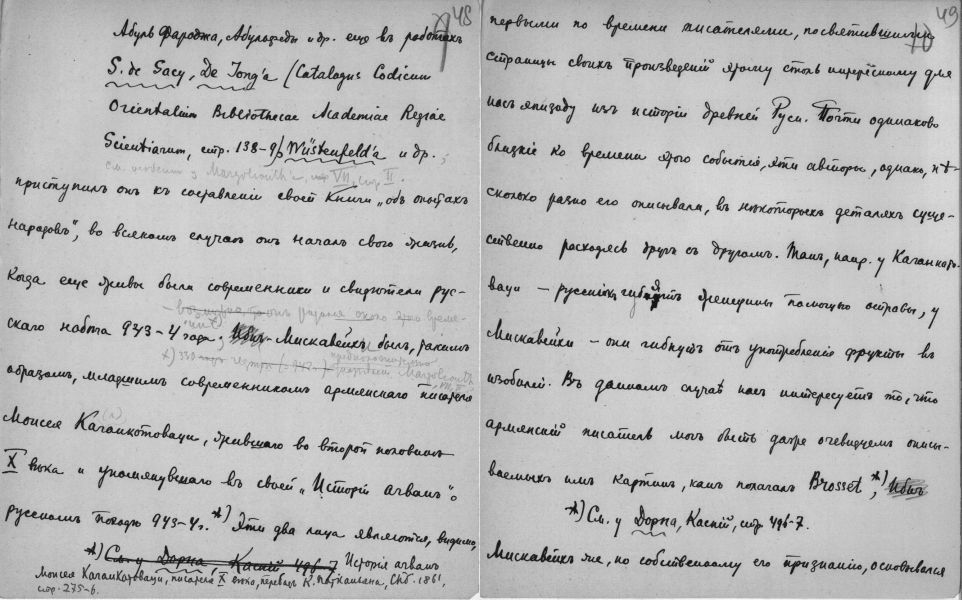 48
Абуль Фароджа, Абульфеды и др. еще въ работахъ
S. de Sacy, De Jong'a (Catalogus Codicum
Orientalium Bibliothecae Academiae Regiae
Scientiarum, стр. 138-9), Wüstenfeld'a и др.;
см. особенно у Margoliouth'a, VII, стр. II.
приступилъ онъ къ составленію своей Книги „объ опытахъ
народовъ", во всякомъ случаѣ онъ началъ свого жизнь,
когда еще живы были современники и свидѣтели рус-
скаго набѣга 943-4 года; Ибнъ-Мискавейхъ былъ, такимъ
образомъ, младшимъ современникомъ армянскаго писателя
Моисея Каганкотоваци, жившаго во второй половинѣ
X вѣка и упомянувшаго въ своей „Исторіи агванъ" о
русскомъ походѣ 943-4 г. *) Эти два лица являются, видимо,
*) См. у Дорна, Каспій 496-7 Исторія агванъ
Моисея Каганкатоваци, писателя X вѣка, перев. К. Патканьяна, Спб. 1861,
стр. 275-6.
49
10
первыми по времени писателями, посвятившими
страницы своихъ произведеній этому столь интересному для
насъ эпизоду изъ исторіи древней Руси. Почти одинаково
близкіе ко времени этого событія, эти авторы, однако, нѣ-
сколько разно его описывали, въ нѣкоторыхъ деталяхъ суще-
ственно расходясь другъ съ другомъ. Такъ, напр. у Каганкато-
ваци — русскихъ губятъ женщины помощью отравы, у
Мискавейхи — они гибнутъ отъ употребленія фрукты въ
изобиліи. Въ данномъ случаѣ насъ интересуетъ то, что
армянскій писатель могъ быть даже очевидцемъ описы-
ваемыхъ имъ картинъ, какъ полагалъ Brosset, *) Ибнъ
*) См. у Дорна, Каспій, стр 496-7.
Мискавейхъ же, по собственному его признанію, основывался